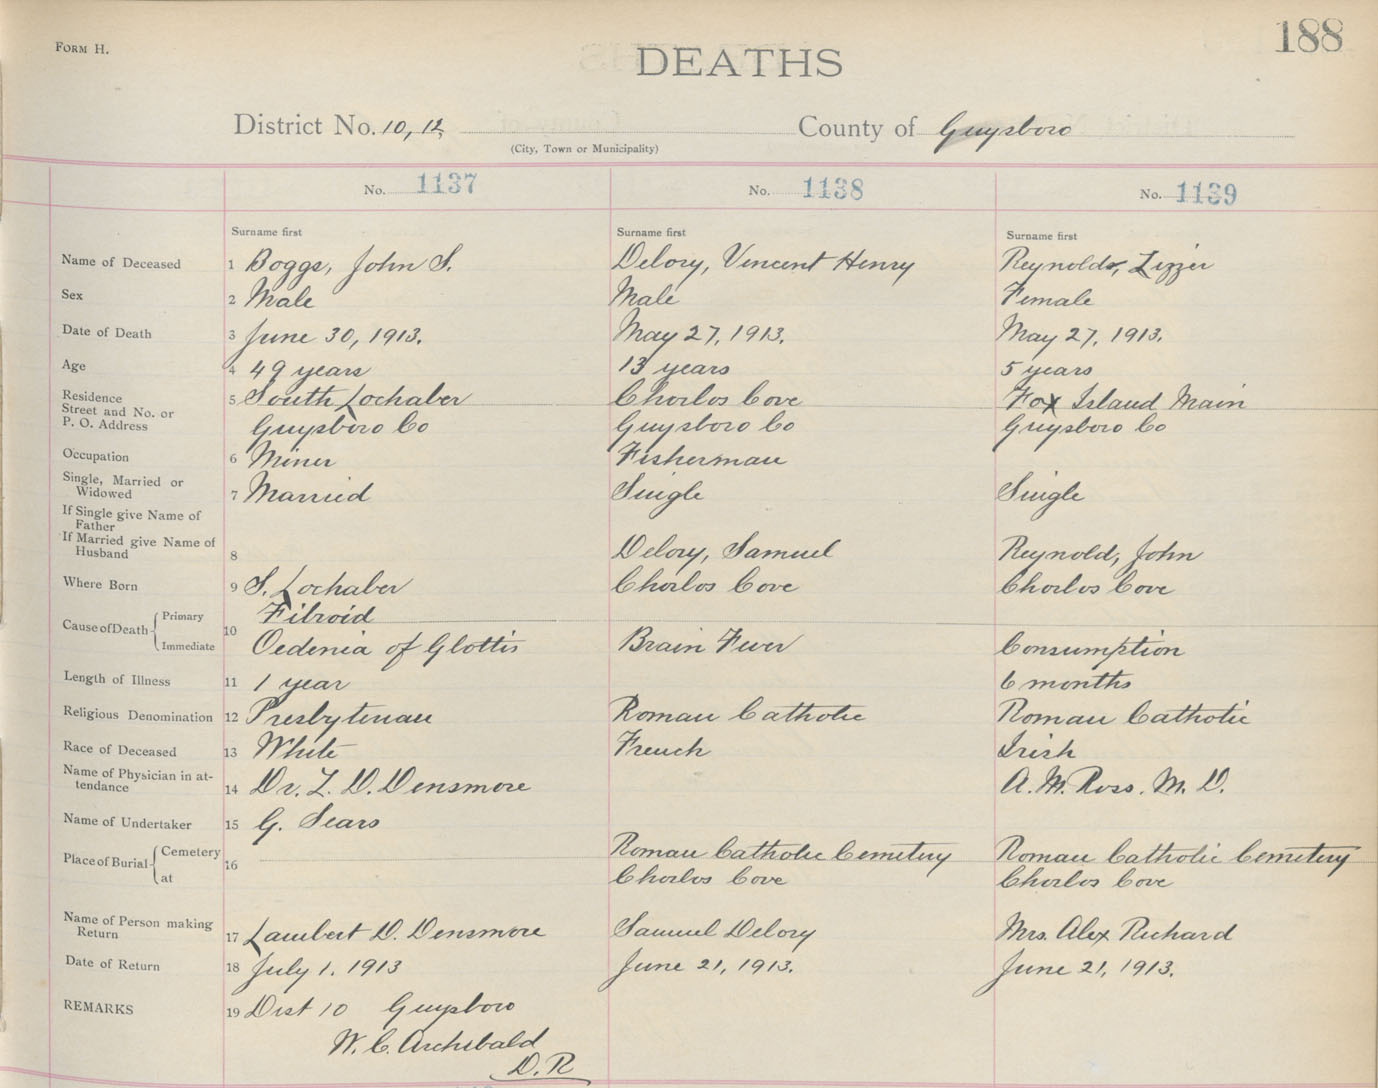 FORM H.
188
DEATHS
District No. 10, 12,
County of Guysboro
(City, Town or Municipality)
No. 1137
No. 1138
No. 1139
Surname first
Surname first
Surname first
Name of Deceased 1 Boggs, John S. Delory, Vincent Henry Reynolds, Lizzie
Sex 2 Male Male Female
Date of Death 3 June 30, 1913. May 27, 1913. May 27, 1913.
Age 4 49 years 13 years 5 years
Residence
Street and No. or
P. O. Address
5 South Lochaber Chorlos Cove Fox Island Main
Guysboro Co Guysboro Co Guysboro Co
Occupation 6 Miner Fisherman
Single, Married or
Widowed
7 Married Single Single
If Single give Name of
Father
If Married give Name of
Husband
8 Delory, Samuel Reynold, John
Where Born 9 S. Lochaber Chorlos Cove Chorlos Cove
Cause of Death Primary Fibroid
10
Immediate Oedenia of Glottis Brain Fever Consumption
Length of Illness 11 1 year 6 months
Religious Denomination 12 Presbyterian Roman Catholic Roman Catholic
Race of Deceased 13 White French Irish
Name of Physician in at-
tendance
14 Dr. L. D. Densmore A. M. Ross. M. D.
Name of Undertaker 15 G. Sears
Place of Burial Cemetery 16 Roman Catholic Cemetery Roman Catholic Cemetery
at Chorlos Cove Chorlos Cove
Name of Person making
Return
17 Lambert D. Densmore Samuel Delory Mrs. Alex Richard
Date of Return 18 July 1. 1913 June 21, 1913. June 21, 1913.
REMARKS 19 Dist 10 Guysboro
W. C. Archibald
D. R